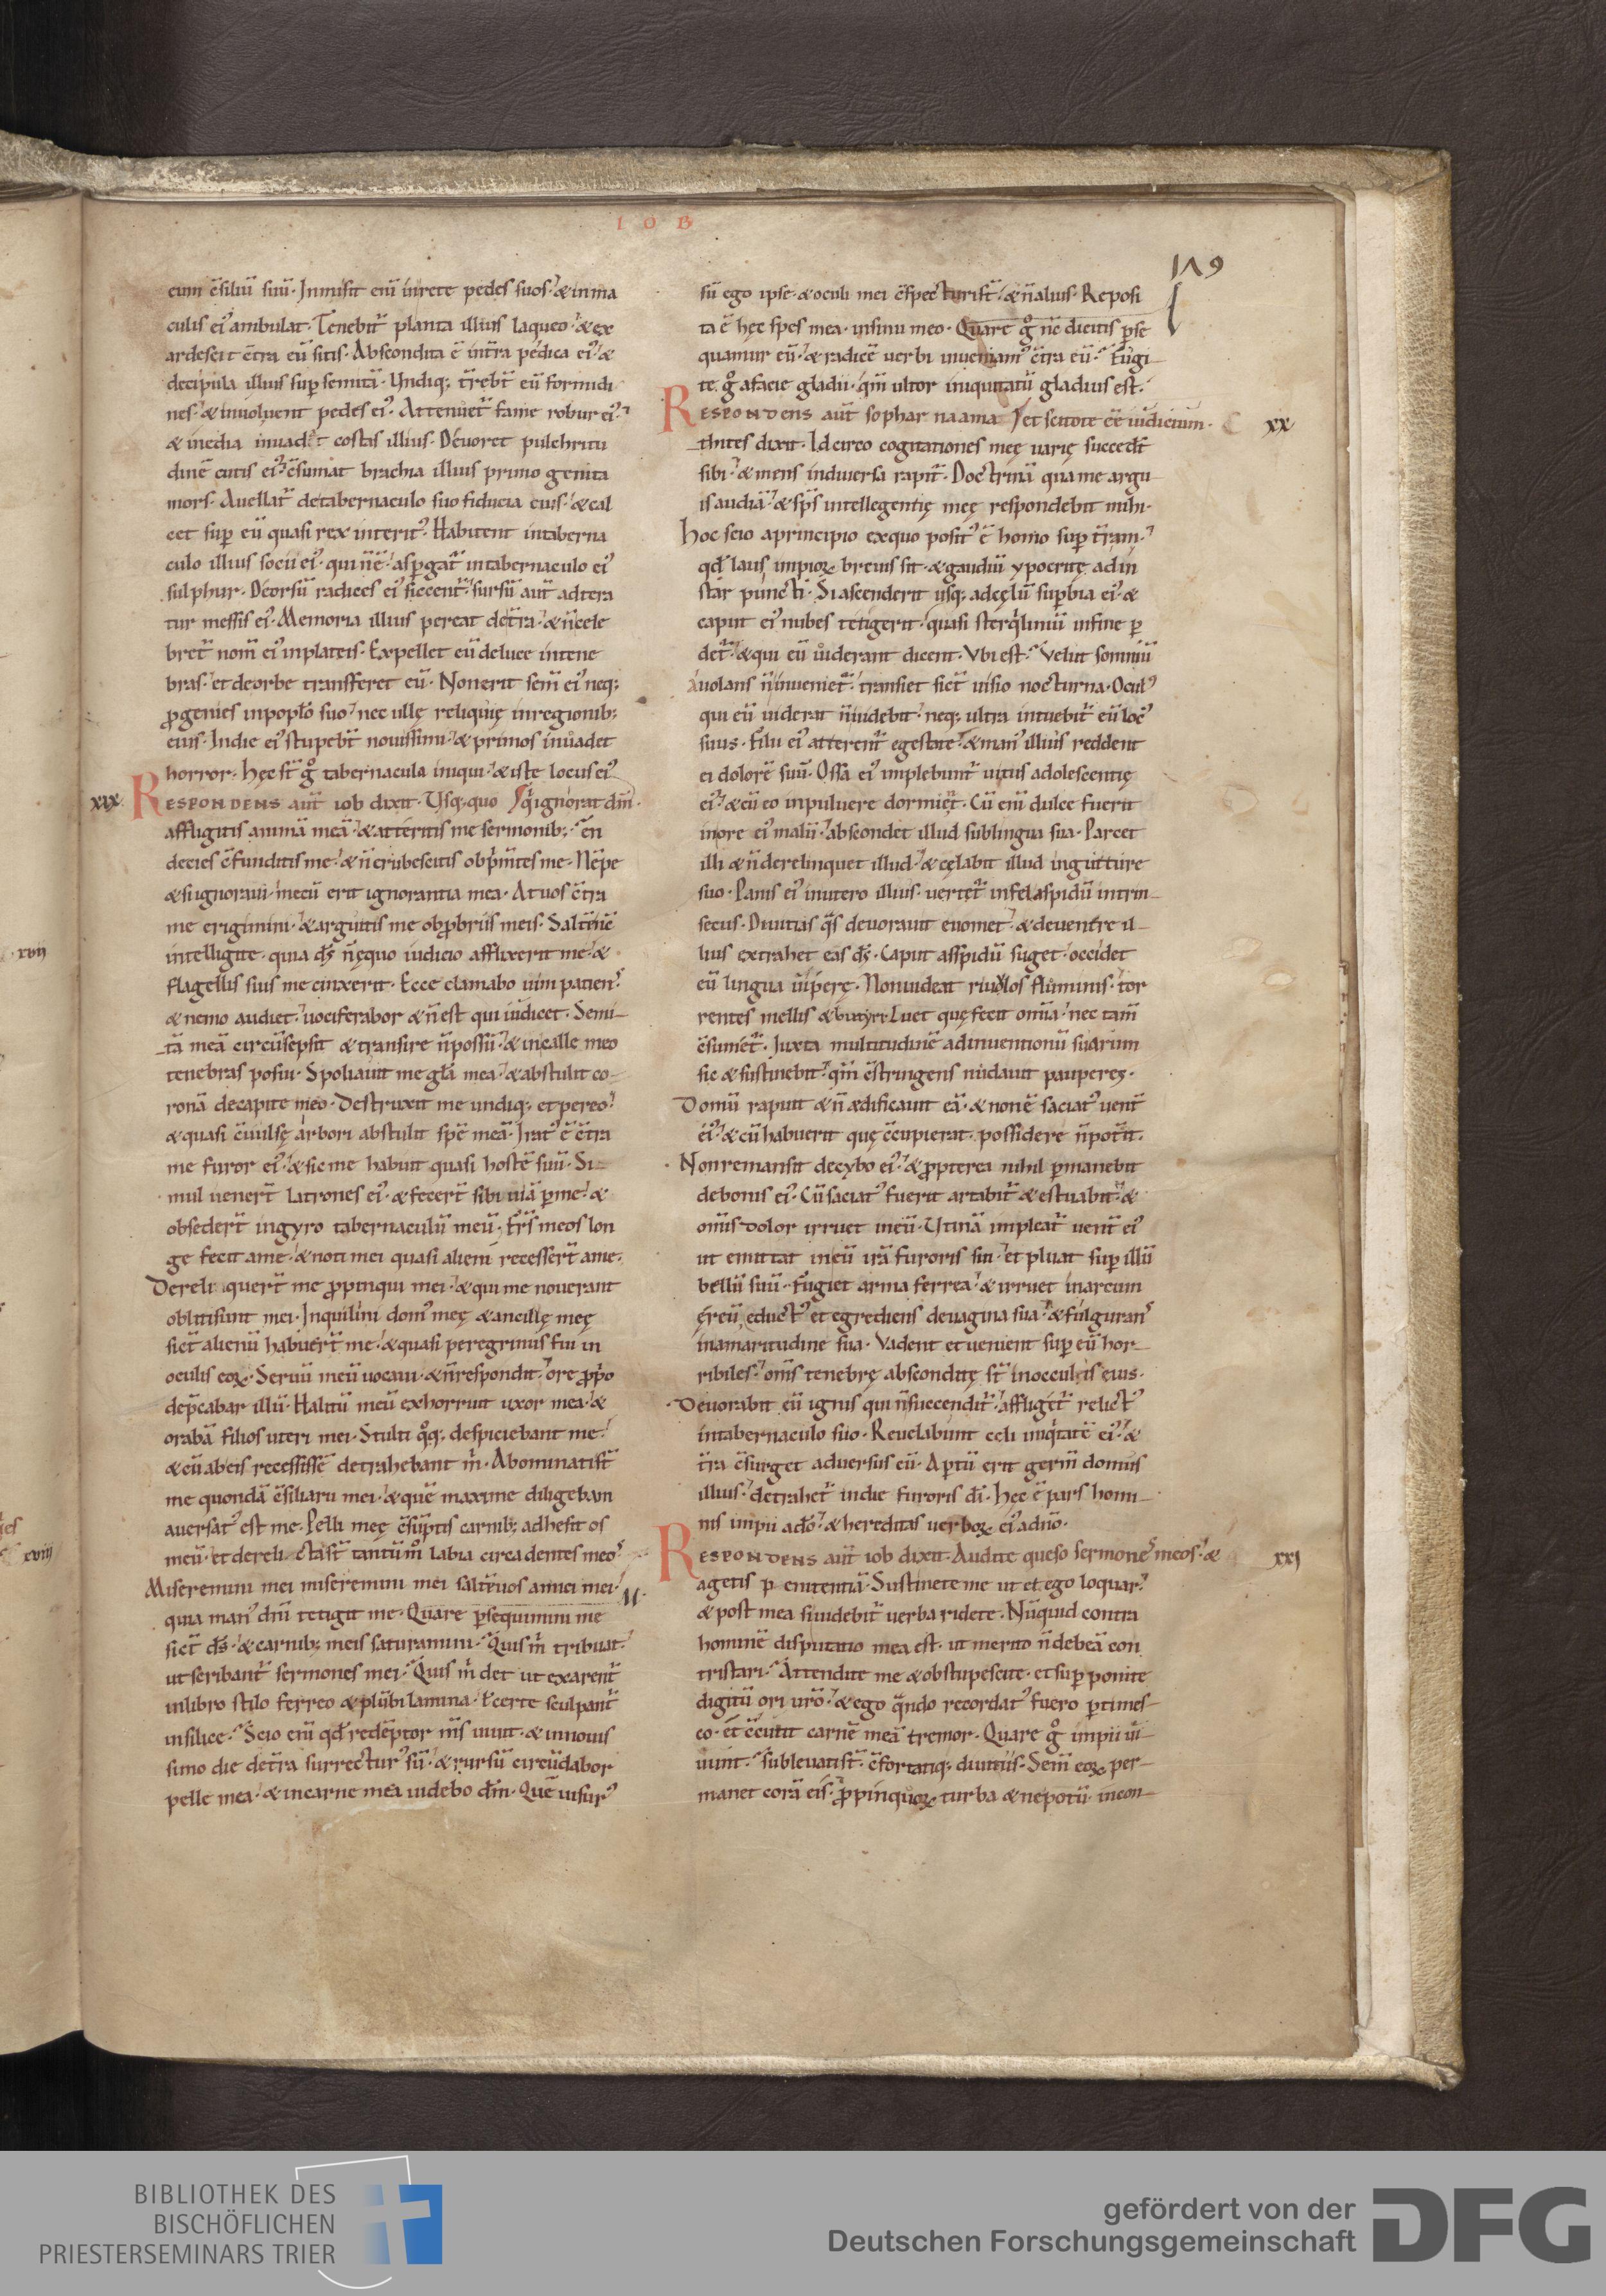 I O B
119
eum c̄siliū suū· Inmisit eni̅ inrete pedes suos· & inma
culis ei᾿ ambulat· Tenebit̄ planta illius laqueo· & ex
ardescit c̄tra eū sitis· Abscondita ē int̄ra pedica ei᾿ &
decipula illius sup̱ semitā· Undiq; t̄rebt̄ eū formidi
nes· & involvent pedes ei᾿· Attenuet̄ fame robur ei᾿
& inedia invadat costas illius· Devoret pulchritu
dinē cutis ei᾿ c̄sumat brachia illius primo genita
mors· Avellat̄ detabernaculo suo fiducia eius· & cal
cet sup̱ eū quasi rex interit᾿· Habitent intaberna
culo illius socii ei᾿· qui n̄ ē· asp̱gat̄ intabernaculo ei᾿
sulphur· Deorsū radices ei᾿ siccent̄· sursū aut̄ adtera
tur messis ei᾿· Memoria illius pereat det̄ra· & n̄ cele
bret̄ nom̄ ei᾿ inplateis· Expellet eū deluce intene
bras· et deorbe transferet eū· Non erit sem̄ ei᾿ neq;
ꝓgenies inpopl̄o suo· nec ullę reliquię inregionib;
eius· Indie ei᾿ stupebt̄ novissimi· & primos invadet
horror· Hęc st̄ gͦ tabernacula iniqui· & iste locus ei᾿
xix· RESPONDENS aut̄ iob dixit· Usq; quo qͥ ignorat dm̄·
affligitis animā meā· & atteritis me sermonib;· En
decies c̄funditis me· & n̄ erubescitis obp̄m̄tes me· Nēpe
& si ignoravi· mecū erit ignorantia mea· At vos c̄tra
me erigimini· & arguitis me obꝓbriis meis· Saltē nc̄
intelligite· quia ds̄ n̄ ęquo iudicio afflixerit me· &
flagellis suis me cinxerit· Ecce clamabo vim patien᾿
& nemo audiet· vociferabor & n̄ est qui iudicet· Semi
tā meā circūsepsit & transire n̄ possū· & incalle meo
tenebras posuit· Spoliavit me gl̄a mea· & abstulit co
ronā decapite meo· Destruxit me undiq; et pereo·
& quasi evulsę arbori abstulit spē meā· Irat᾿ ē c̄tra
me furor ei᾿· & sic me habuit quasi hostē suū· Si
mul venert̄ latrones ei᾿· & fecert̄ sibi viā p̱ me· &
obsedert̄ ingyro tabernaculū meū· Fr̄s meos lon
ge fecit a me· & noti mei quasi alieni recessert̄ a me·
Dereliquert̄ me ꝓpinqui mei· & qui me noverant
obliti sunt mei· Inquilini dom᾿ meę & ancillę meę
sict̄ alienū habuert̄ me· & quasi peregrinus fui in
oculis eoꝝ· Servū meū vocavi· & n̄ respondit· ore ꝓpͥo
dep̄cabar illū· Halitū meū exhorruit uxor mea· &
orabā filios uteri mei· Stulti qͦq; despiciebant me·
& cū ab eis recessissē detrahebant m̄· Abominatist̄
me quondā c̄siliarii mei· & quē maxime diligebam
aversat᾿ est me· Pelli meę c̄sūptis carnib; adhesit os
meū· et derelicta st̄ tantūmͦ labia circa dentes meo᾿
Miseremini mei miseremini mei saltē vos amici mei·
quia man᾿ dn̄i tetigit me· Quare p̱sequimini me
sict̄ ds̄· & carnib; meis saturamini· Quis m̄ tribuat·
ut scribant̄ sermones mei· Quis m̄ det ut exarent̄
inlibro stilo ferreo & plūbi lamina· t̄ certe sculpant̄
insilice· Scio eni̅ qd̄ redēptor m̄s vivit· & innovis
simo die det̄ra surrectur᾿ sū· & rursū circūdabor
pelle mea· & incarne mea videbo dm̄· Quē visur᾿
sū ego ipse· & oculi mei c̄specturist̄· & n̄ alius· Reposi
ta ē hęc spes mea· insinu meo· Quare gͦ nc̄ dicitis p̱se
quamur eū· & radicē verbi inveniam᾿ c̄tra eū· Fugi
te gͦ afacie gladii· qm̄ ultor iniquitatū gladius est·
RESPONDENS aut̄ sophar naama et scitote eē iudicium· xx
thites dixit· Idcirco cogitationes meę varię succedt̄
sibi· & mens indiversa rapit̄· Doctrinā qua me argu
is audiā· & sp̄s intellegentię meę respondebit mihi·
Hoc scio aprincipio exquo posit᾿ ē homo sup̱ t̄ram·
qd̄ laus impioꝝ brevis sit· & gaudiū ypocritę ad in
star puncti· Si ascenderit usq; ad cęlū sup̱bia ei᾿ &
caput ei᾿ nubes tetigerit· quasi sterqͥliniū infine p̱
det̄· & qui eū viderant dicent· Ubi est· Velut somniū
avolans n̄ inveniet̄· transiet sict̄ visio nocturna· Ocul᾿
qui eū viderat n̄ videbit· neq; ultra intuebit̄ eū loc᾿
suus· Filii ei᾿ atterent̄ egestate· & man᾿ illius reddent
ei dolorē suū· Ossa ei᾿ implebunt̄ vitiis adolescentię
ei᾿· & cū eo inpulvere dormiet̄· Cū eni̅ dulce fuerit
inore ei᾿ malū· abscondet illud sublingua sua· Parcet
illi & n̄ derelinquet illud· & cęlabit illud ingutture
suo· Panis ei᾿ inutero illius· vertet̄ infel aspidū intrin
secus· Divitias qͣs devoravit evomet· & deventre il
lius extrahet eas ds̄· Caput aspidū suget· occidet
eū lingua viperę· Non videat rivulos fluminis· tor
rentes mellis & butyri· Luet quę fecit omīa· nec tam̄
c̄sumet̄· Iuxta multitudinē adinventionū suarum
sic & sustinebit· qm̄ c̄stringens nudavit pauperes·
Domū rapuit & n̄ ædificavit eā· & non ē saciat᾿ vent̄
ei᾿· & cū habuerit quę c̄cupierat· possidere n̄ pot̄it·
Non remansit decybo ei᾿· & ꝓpterea nihil p̱manebit
debonis ei᾿· Cū saciat᾿ fuerit artabit̄ & estuabit· &
om̄is dolor irruet ineū· Utinā impleat̄ vent̄ ei᾿
ut emittat ineū irā furoris sui· et pluat sup̱ illū
bellū suū· Fugiet arma ferrea· & irruet inarcum
ęreū· educt᾿ et egrediens devagina sua· & fulguran᾿
inamaritudine sua· Vadent et venient sup̱ eū hor
ribiles· om̄s tenebrę absconditę st̄ inoccultis eius·
Devorabit eū ignis qui n̄ succendit̄· affliget̄ relict᾿
intabernaculo suo· Revelabunt celi iniqͥtatē ei᾿· &
t̄ra c̄surget adversus eū· Ap̱tū erit germ̄ domus
illius· detrahet̄ indie furoris dī· Hęc ē pars homi
nis impii ad̄o· & hereditas verboꝝ ei᾿ adn̄o·
RESPONDENS aut̄ iob dixit· Audite queso sermone᾿ meos· & xxi
agetis p̱enitentiā· Sustinete me ut et ego loquar·
& post mea si videbit̄ verba ridete· Nūquid contra
hominē disputatio mea est· ut merito n̄ debeā con
tristari· Attendite me & obstupescite· et sup̱ponite
digitū ori vr̄o· & ego qͣndo recordat᾿ fuero p̱times
co· et c̄cutit carnē meā tremor· Quare gͦ impii vi
vunt· sublevatist̄· c̄fortatiq; divitiis· Sem̄ eoꝝ per
manet corā eis· ꝓpinquoꝝ turba & nepotū· incon
BIBLIOTHEK DES
BISCHÖFLICHEN
PRIESTERSEMINARS TRIER
gefördert von der
Deutschen Forschungsgemeinschaft
DFG